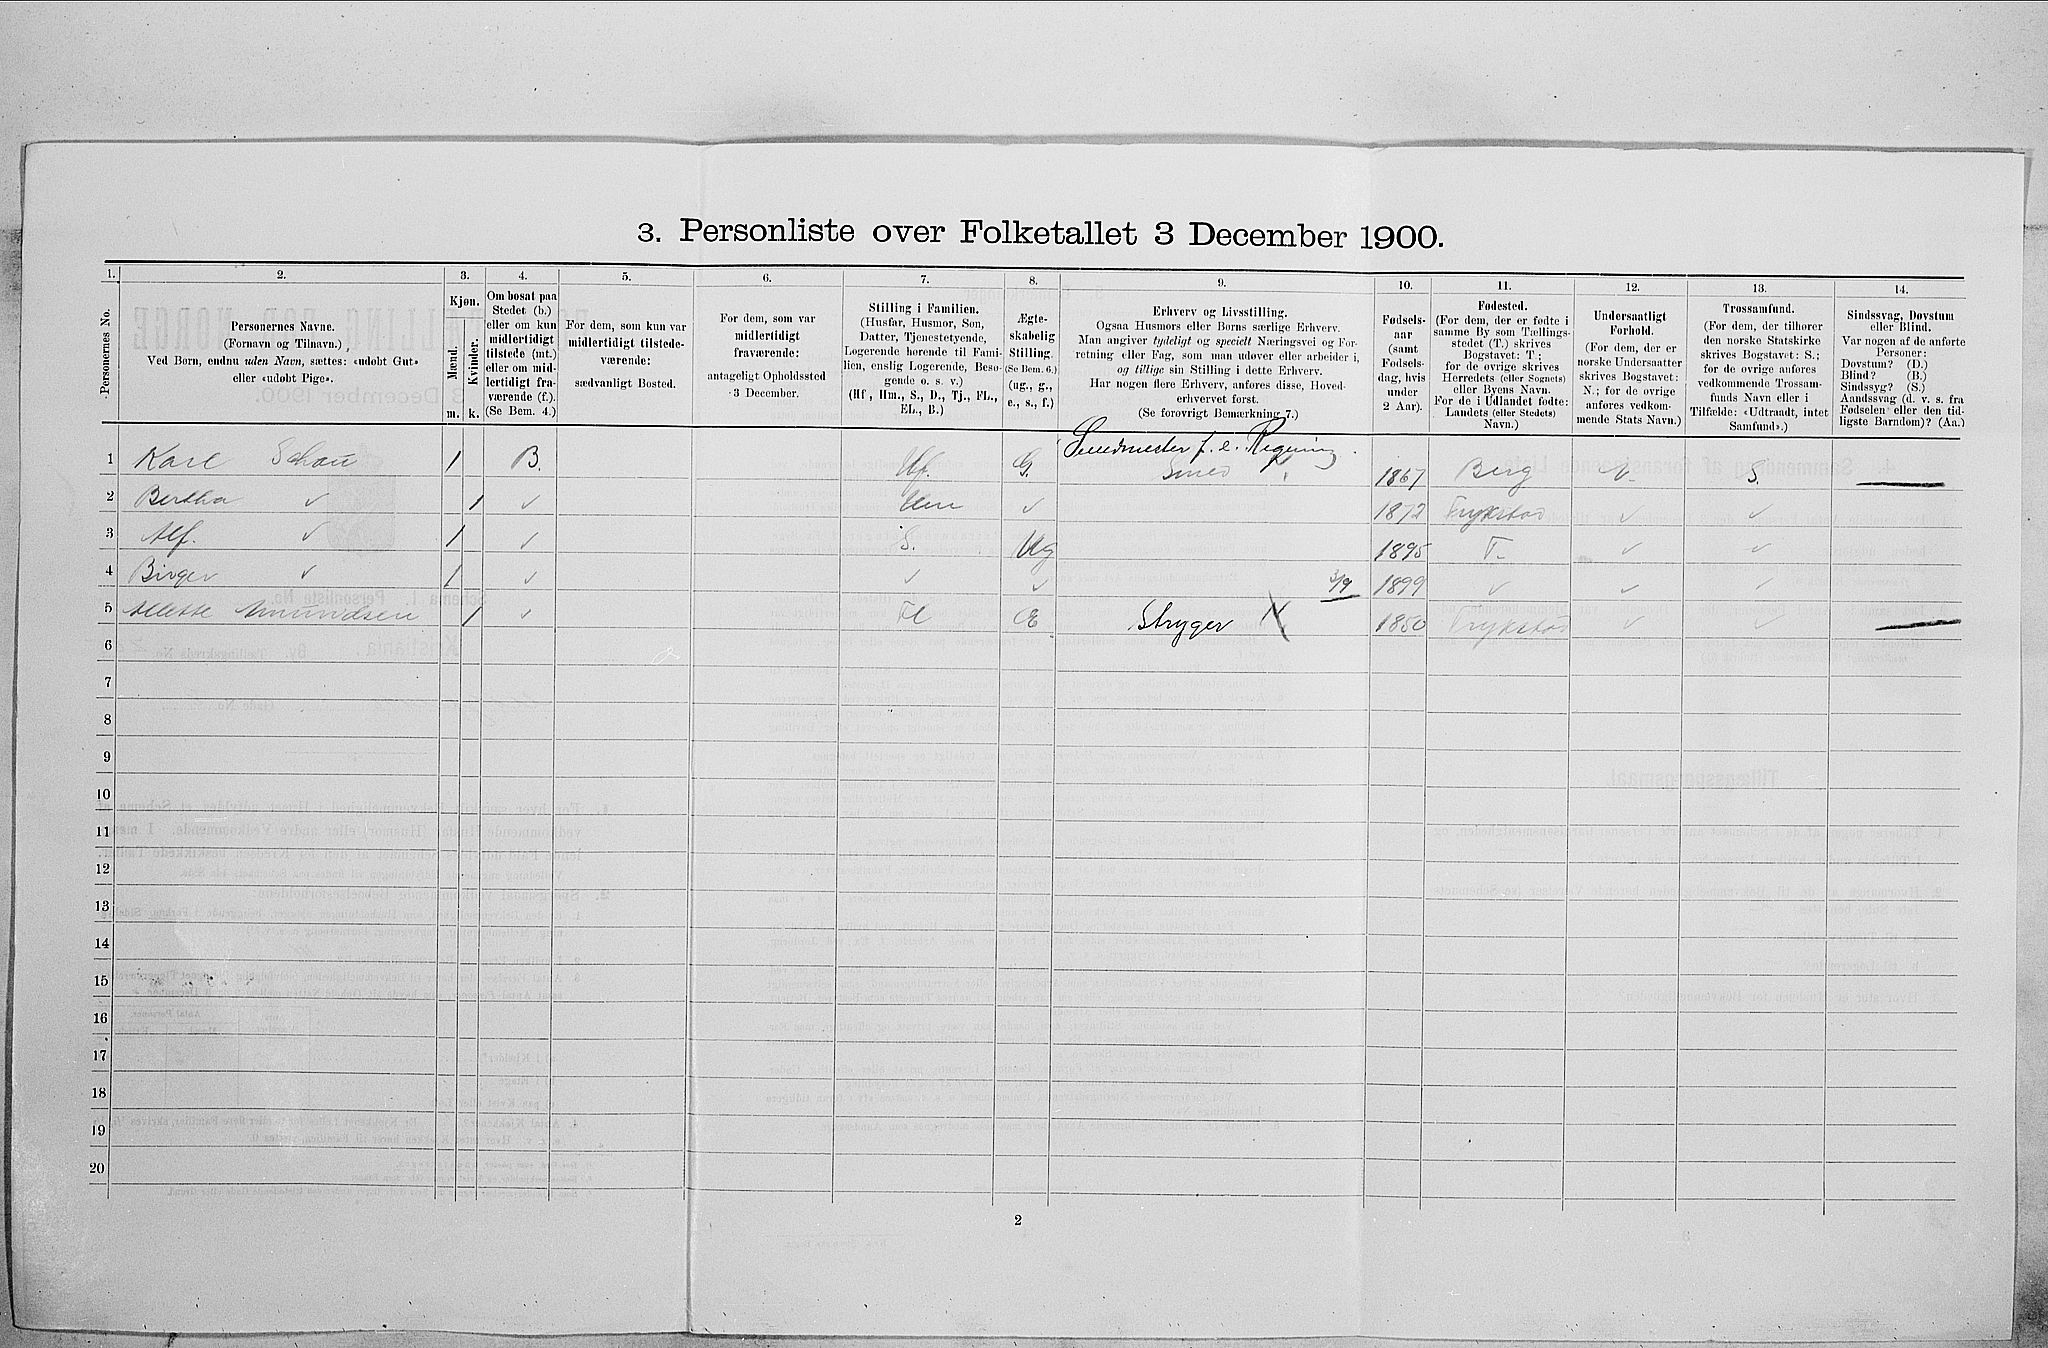 3. Personliste over Folketallet 3 December 1900.
1. 2. 3. 4. 5. 6. 7. 8. 9. 10. 11. 12. 13. 14.
Personernes No.
Personernes Navne.
(Fornavn og Tilnavn.)
Ved Børn, endnu uden Navn, sættes: «udøbt Gut»
eller «udøbt Pige».
Kjøn.
Mænd.
Kvinder.
m. k.
Om bosat paa
Stedet (b.)
eller om kun
midlertidigt
tilstede (mt.)
eller om mid-
lertidigt fra-
værende (f.).
(Se Bem. 4.)
For dem, som kun var
midlertidigt tilstede-
værende:
sædvanligt Bosted.
For dem, som var
midlertidigt
fraværende:
antageligt Opholdssted
3 December.
Stilling i Familien.
(Husfar, Husmor, Søn,
Datter, Tjenestetyende,
Logerende hørende til Fami-
lien, enslig Logerende, Besø-
gende o. s. v.)
(Hf, Hm., S., D., Tj., FL.,
EL., B.)
Ægte-
skabelig
Stilling.
(Se Bem. 6.)
(ug., g.,
e., s., f.)
Erhverv og Livsstilling.
Ogsaa Husmors eller Børns særlige Erhverv.
Man angiver tydeligt og specielt Næringsvei og For-
retning eller Fag, som man udøver eller arbeider i,
og tillige sin Stilling i dette Erhverv.
Har nogen flere Erhverv, anføres disse, Hoved-
erhvervet først.
(Se forøvrigt Bemærkning 7.)
Fødsels-
aar
(samt
Fødsels-
dag, hvis
under
2 Aar).
Fødested.
(For dem, der er fødte i
samme By som Tællings-
stedet (T.) skrives
Bogstavet: T;
for de øvrige skrives
Herredets (eller Sognets)
eller Byens Navn.
For de i Udlandet fødte:
Landets (eller Stedets)
Navn.)
Undersaatligt
Forhold.
(For dem, der er
norske Undersaatter
skrives Bogstavet:
N.; for de øvrige
anføres vedkom-
mende Stats Navn.)
Trossamfund.
(For dem, der tilhører
den norske Statskirke
skrives Bogstavet: S.;
for de øvrige anføres
vedkommende Trossam-
funds Navn eller i
Tilfælde: «Udtraadt, intet
Samfund».)
Sindssvag, Døvstum
eller Blind.
Var nogen af de anførte
Personer:
Døvstum? (D.)
Blind? (B.)
Sindssyg? (S.)
Aandssvag (d. v. s. fra
Fødselen eller den tid-
ligste Barndom)? (Aa.)
Smedmester f. e. Regning.
1 Karl Schou 1 B. Hf. G. Smed 1867 Berg N. S.
2 Bertha ✓ 1 ✓ Hm ✓ 1872 Trykstad ✓ ✓
3 Alf. ✓ 1 ✓ S. Ug 1895 T. ✓ ✓
4 Birger ✓ 1 ✓ ✓ ✓ 3/9 1899 ✓ ✓ ✓
5 Mette Amundsen 1 ✓ Fl E Stryger X 1850 Trykstad ✓ ✓
6
7
8
9
10
11
12
13
14
15
16
17
18
19
20
2